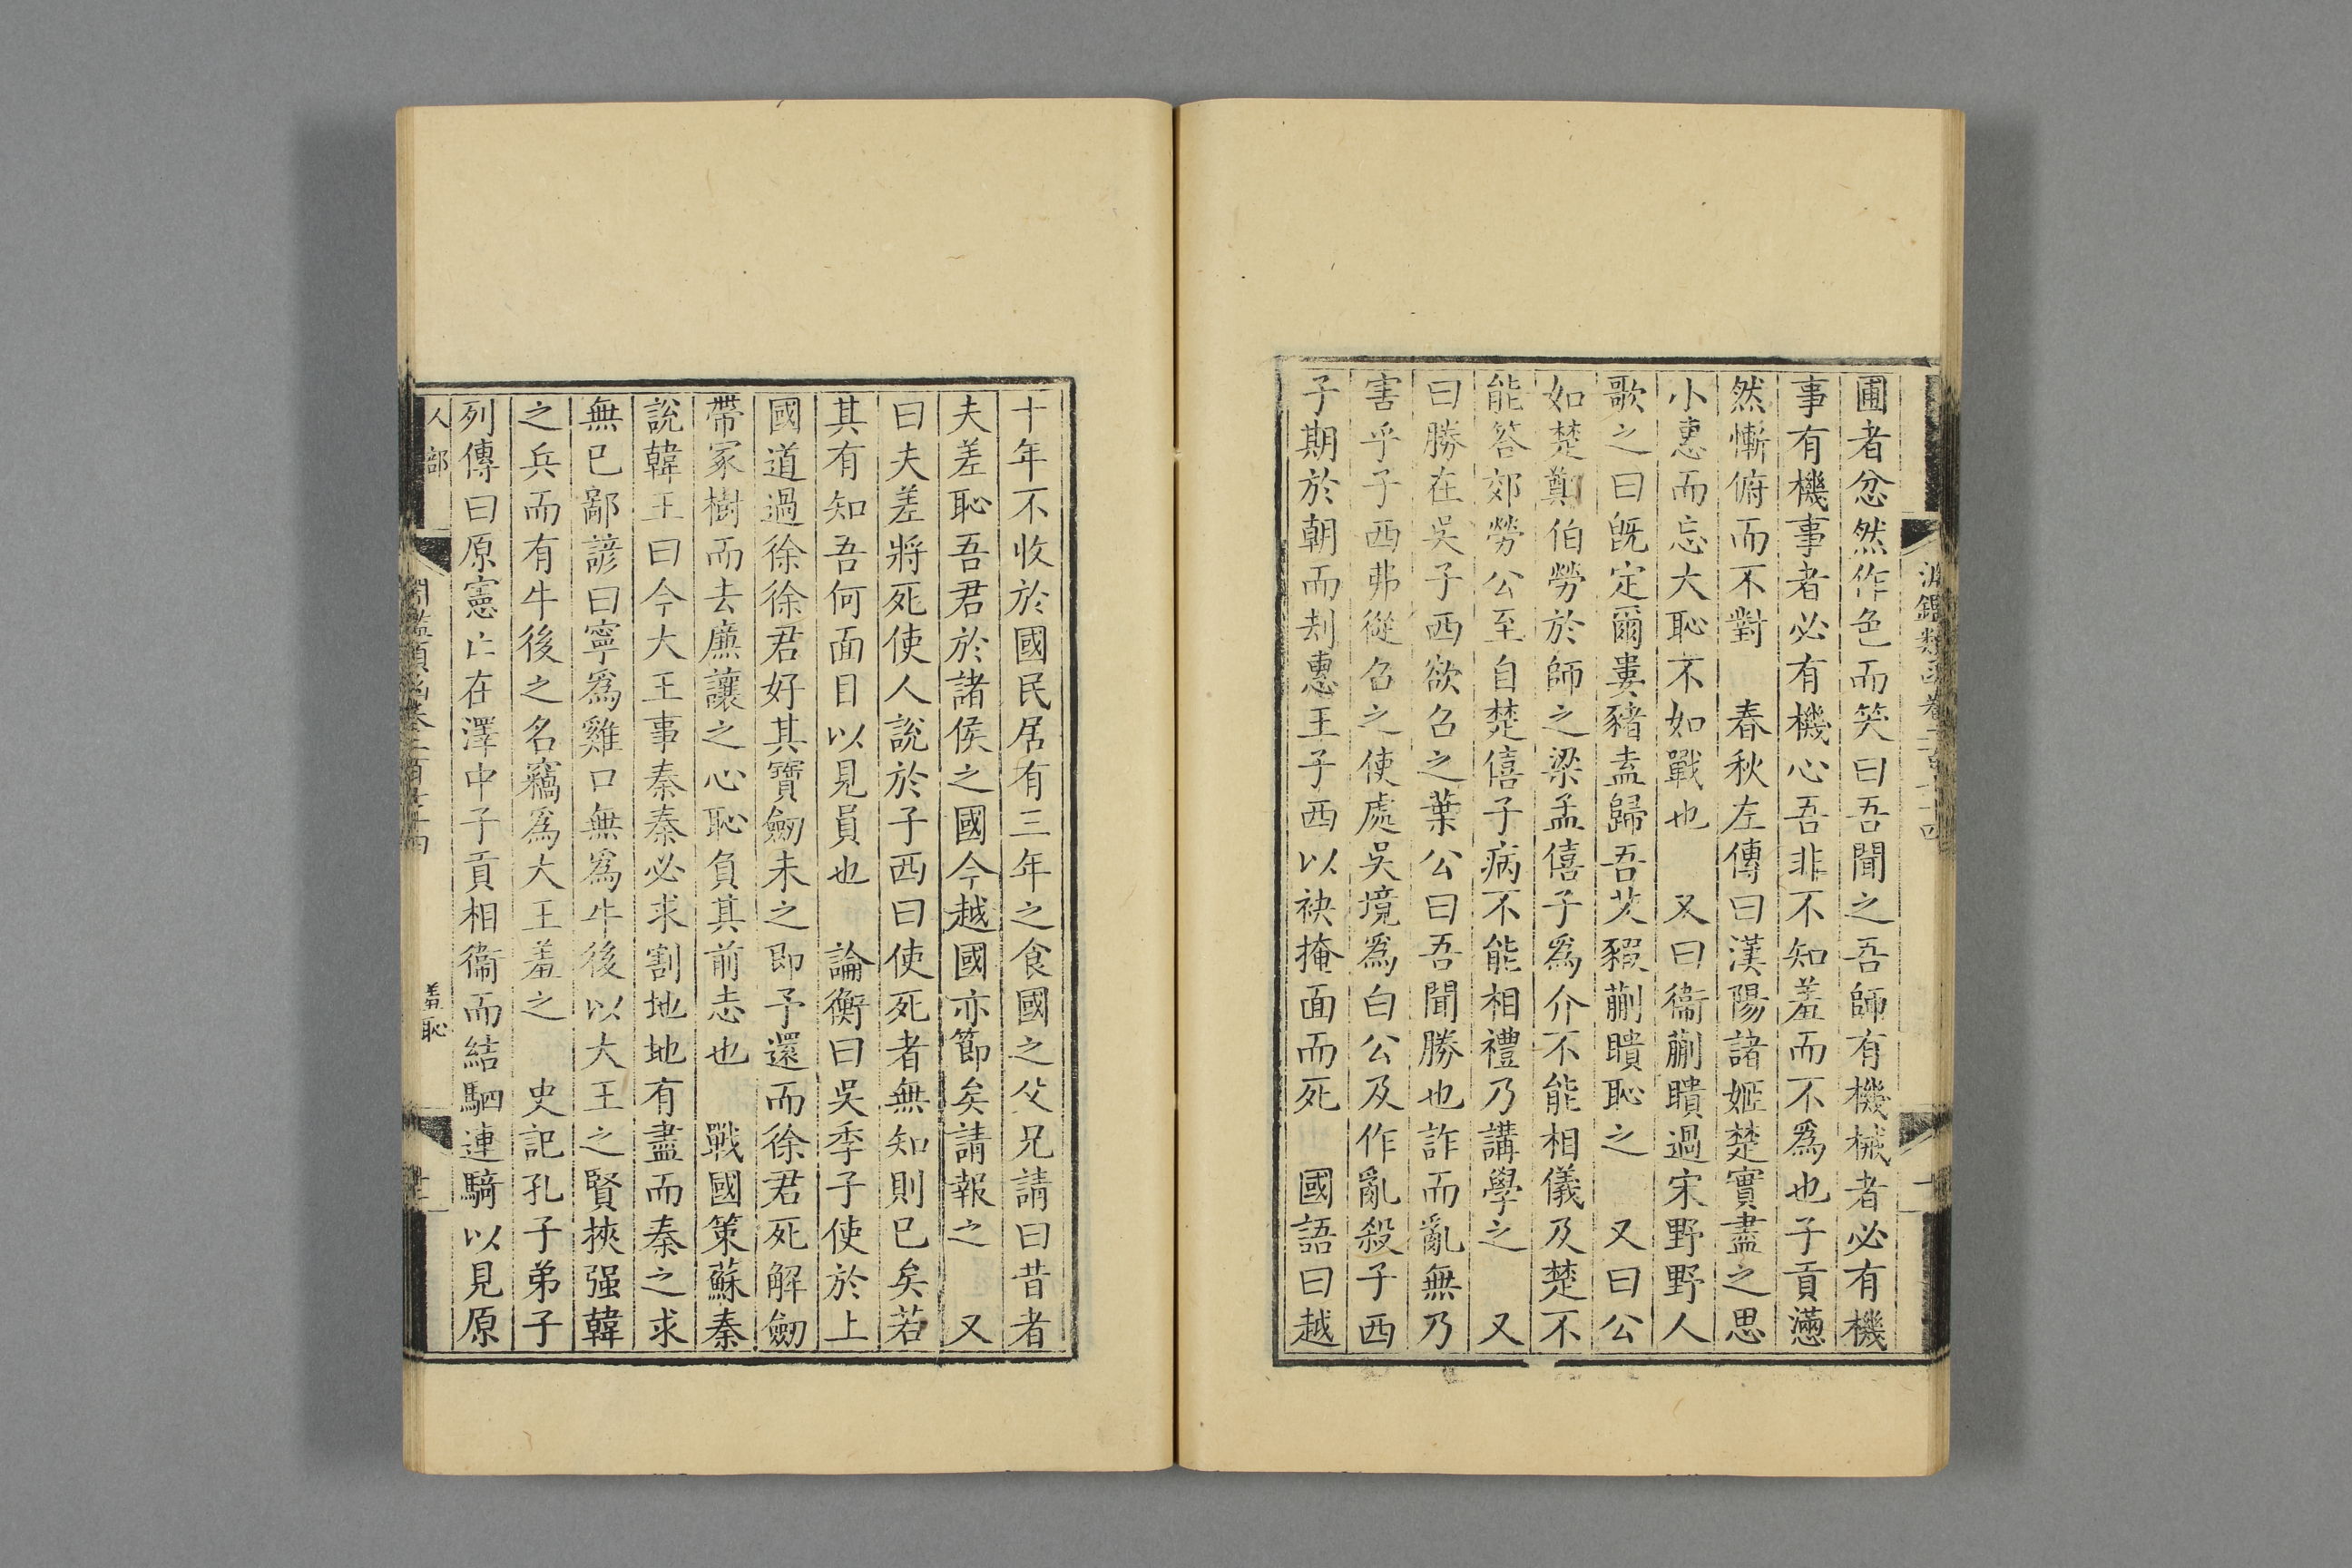 圃者忿然作色而笑曰吾聞之吾師有機械者必有機
事有機事者必有機心吾非不知羞而不爲也子貢懣
然慚俯而不對　春秋左傳曰漢陽諸姬楚實盡之思
小惠而忘大恥不如戰也　又曰衞蒯聵過宋野野人
歌之曰旣定爾婁豬盍歸吾艾豭蒯聵恥之　又曰公
如楚鄭伯勞於師之梁孟僖子爲介不能相儀及楚不
能答郊勞公至自楚僖子病不能相禮乃講學之　又
曰勝在吳子西欲召之葉公曰吾聞勝也詐而亂無乃
害乎子西弗從召之使處吳境爲白公及作亂殺子西
子期於朝而刦惠王子西以袂掩面而死　國語曰越
十年不收於國民居有三年之食國之父兄請曰昔者
夫差恥吾君於諸侯之國今越國亦節矣請報之　又
曰夫差將死使人說於子西曰使死者無知則已矣若
其有知吾何面目以見員也　論衡曰吳季子使於上
國道過徐徐君好其寶劒未之即予還而徐君死解劒
帶冢樹而去廉讓之心恥負其前志也　戰國策蘇秦
說韓王曰今大王事秦秦必求割地地有盡而秦之求
無已鄙諺曰寧爲雞口無爲牛後以大王之賢挾强韓
之兵而有牛後之名竊爲大王羞之　史記孔子弟子
列傳曰原憲亡在澤中子貢相衞而結駟連騎以見原
人部
羞恥